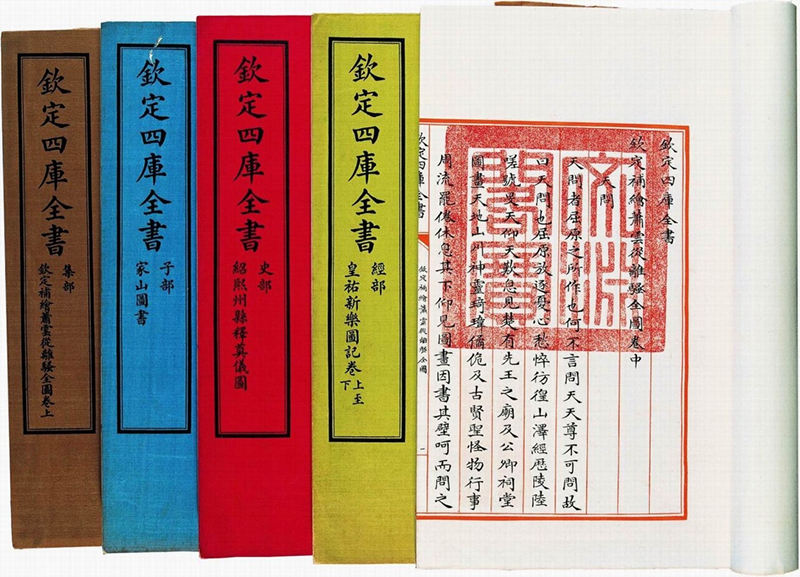 欽定四庫全書
欽定補繪蕭雲從離騷全圖卷中
天問
天問者屈原之所作也何不言問天天尊不可問故
曰天問也屈原放逐憂心愁悴彷徨山澤經厯陵陸
嗟號旻天仰天歎息見楚有先王之廟及公卿祠堂
圖畫天地山川神靈琦瑋僪佹及古賢聖怪物行事
周流罷倦休息其下仰見圖畫因書其壁呵而問之
欽定四庫全書
欽定補繪蕭雲從離騷全圖
一
文淵
閣寶
欽定四庫全書
經部
皇祐新樂圖記卷上至下
欽定四庫全書
史部
紹熙州縣釋奠儀圖
欽定四庫全書
子部
家山圖書
欽定四庫全書
集部
欽定補繪蕭雲從離騷全圖卷上